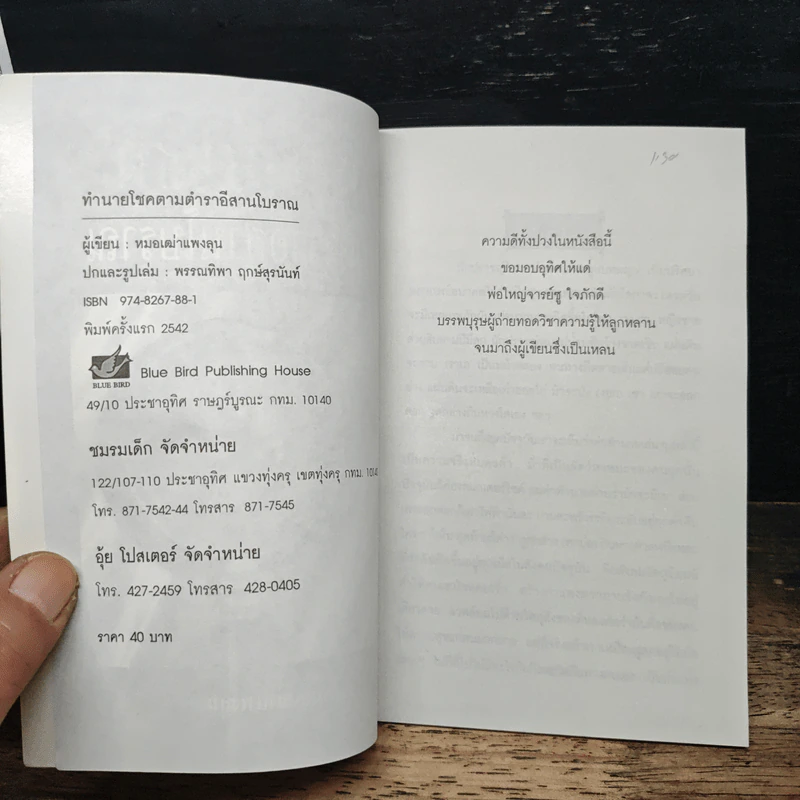 ทำนายโชคตามตำราอีสานโบราณ
ผู้เขียน : หมอเฒ่าแพงลุน
ปกและรูปเล่ม : พรรณทิพา ฤกษ์สุรนันท์
ISBN 974-8267-88-1
พิมพ์ครั้งแรก 2542
BLUE BIRD
Blue Bird Publishing House
49/10 ประชาอุทิศ ราษฎร์บูรณะ กทม. 10140
ชมรมเด็ก จัดจำหน่าย
122/107-110 ประชาอุทิศ แขวงทุ่งครุ เขตทุ่งครุ กทม. 10140
โทร. 871-7542-44 โทรสาร 871-7545
อุ้ย โปสเตอร์ จัดจำหน่าย
โทร. 427-2459 โทรสาร 428-0405
ราคา 40 บาท
ความดีทั้งปวงในหนังสือนี้
ขอมอบอุทิศให้แด่
พ่อใหญ่จารย์ซู ใจภักดี
บรรพบุรุษผู้ถ่ายทอดวิชาความรู้ให้ลูกหลาน
จนมาถึงผู้เขียนซึ่งเป็นเหลน